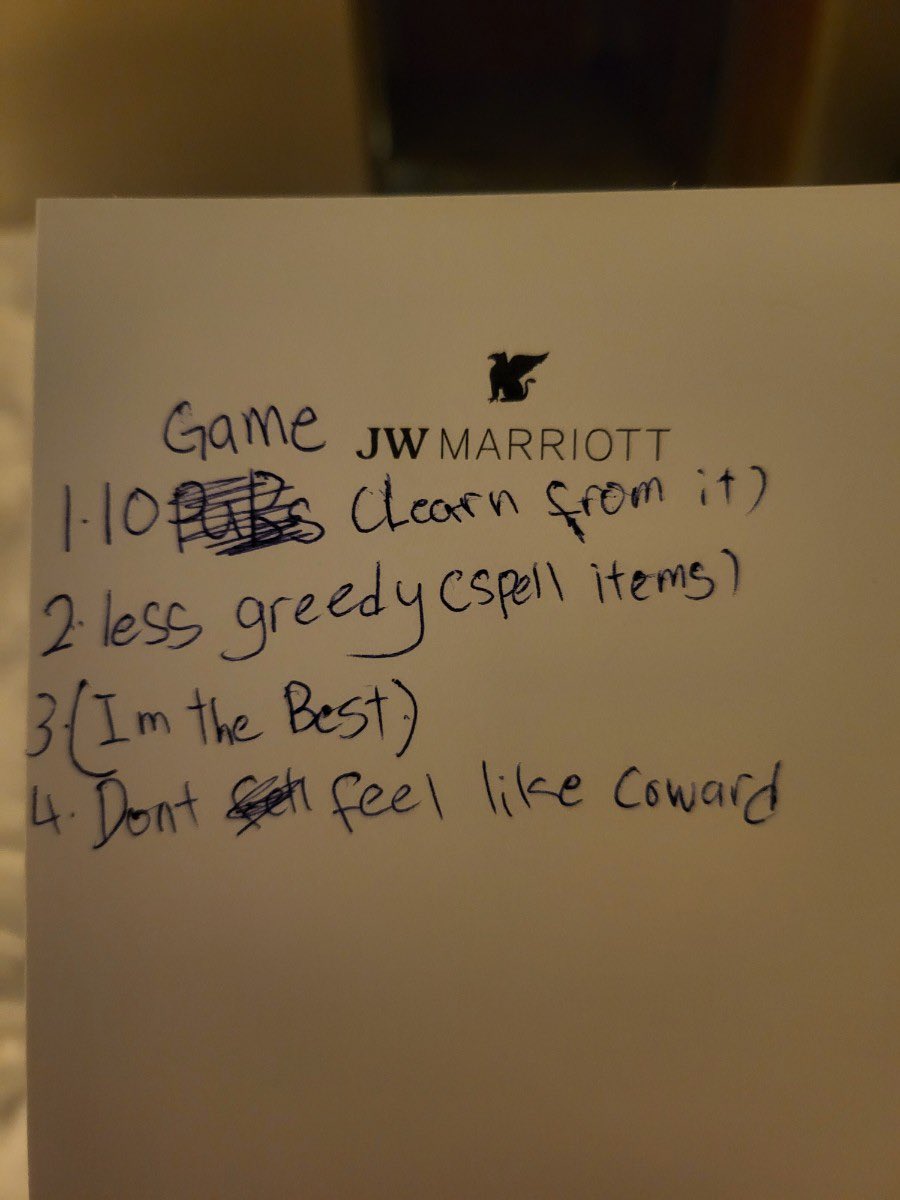 Game
JW MARRIOTT
1.10 (Learn from it)
2. less greedy (spell items)
3.(Im the Best.)
4. Dont feel like coward